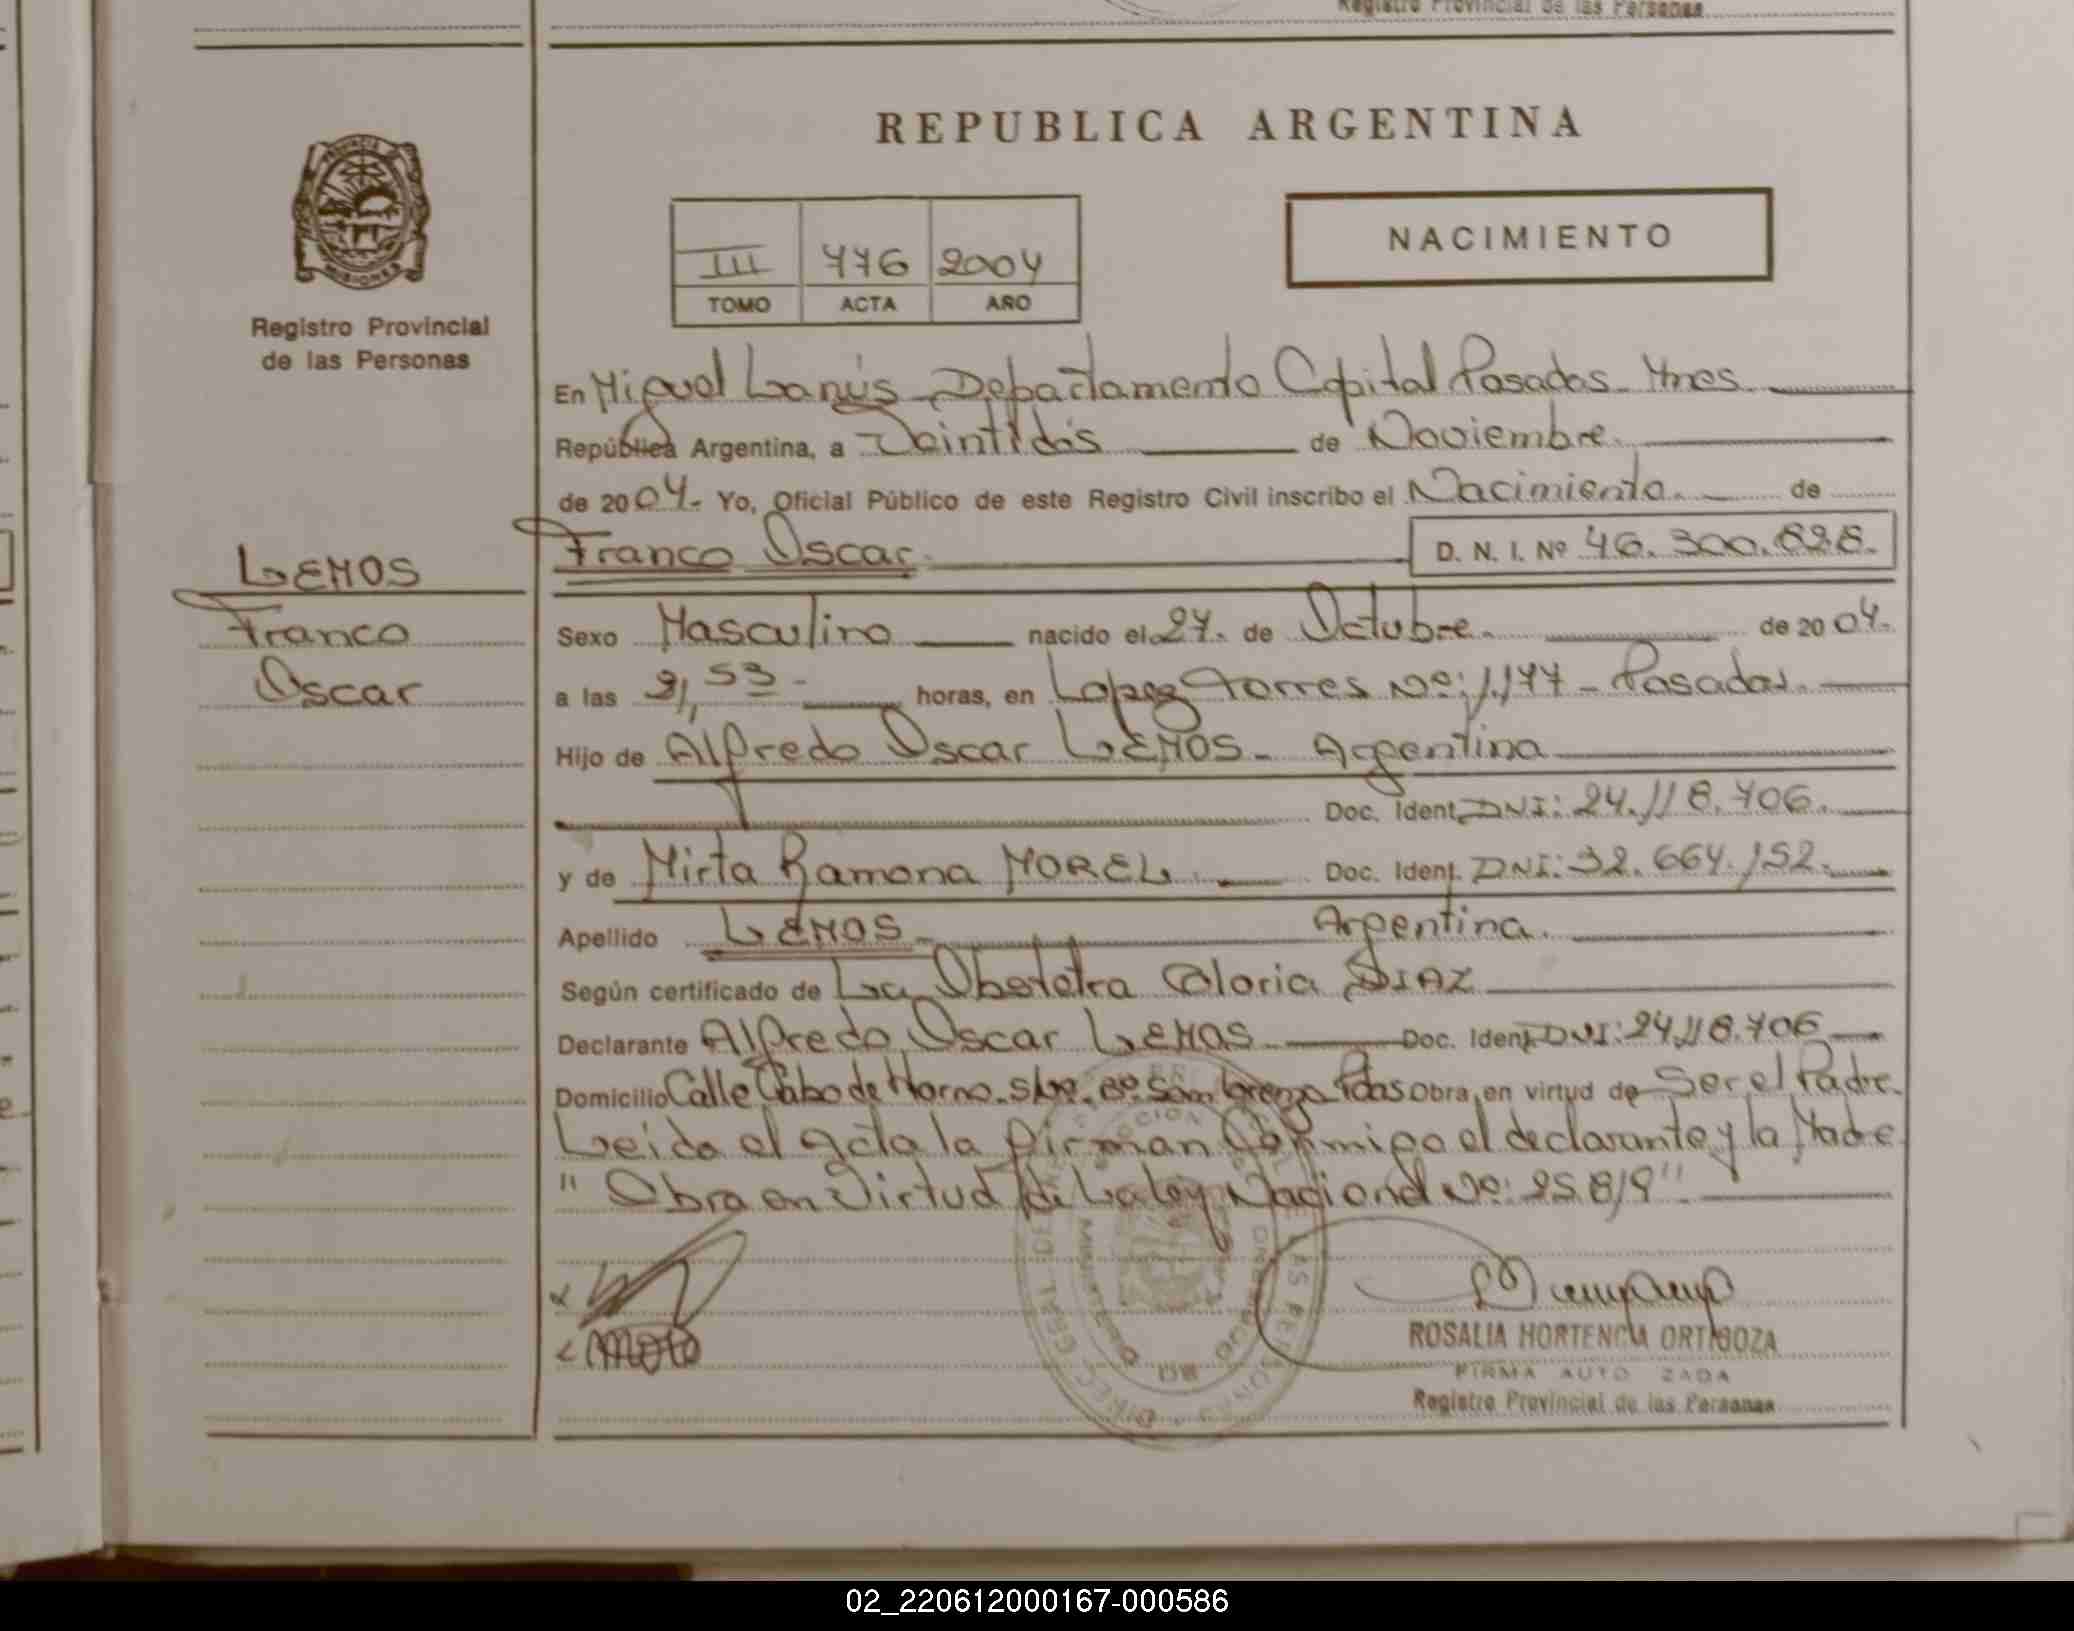 Registro Provincial de las Personas
REPUBLICA ARGENTINA
PROVINCIA
MISIONES
NACIMIENTO
III 776 2004
TOMO ACTA AÑO
Registro Provincial
de las Personas
En Miguel Lanús Departamento Capital Posadas Mnes
República Argentina, a Veintidós de Noviembre
de 2004. Yo, Oficial Público de este Registro Civil inscribo el Nacimiento de
Franco Oscar D. N. I. Nº 46.300.828.
LEMOS
Franco
Oscar
Sexo Masculino nacido el 27. de Octubre. de 2004.
a las 9,53 horas, en Lopez Torres Nº: 1.177 - Posadas.
Hijo de Alfredo Oscar LEMOS - Argentina
Doc. Ident. DNI: 24.118.706.
y de Mirta Ramona MOREL Doc. Ident. DNI: 32.664.152.
Apellido LEMOS Argentina.
Según certificado de La Obstetra Gloria DIAZ
Declarante Alfredo Oscar LEMOS Doc. Ident. DNI: 24.118.706
Domicilio Calle Cabo de Horno. S/Nº. Bº. San Lorenzo Pdas Obra en virtud de Ser el Padre.
Leida el acta la firman Conmigo el declarante y la Madre
" Obra en Virtud de La Ley Nacional Nº: 25.819 "
ROSALIA HORTENCIA ORTIGOZA
FIRMA AUTORIZADA
Registro Provincial de las Personas
02_220612000167-000586